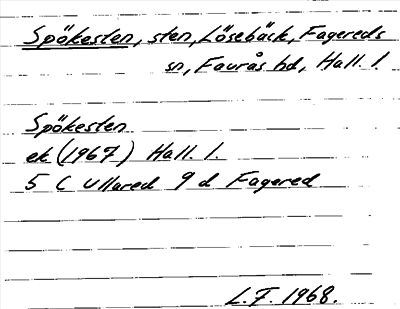 Spökesten, sten, Lösebäck, Fagereds
sn, Faurås hd, Hall. l.
Spökesten
ek (1967) Hall. l.
5 C Ullared 9 d Fagered
L.F. 1968.